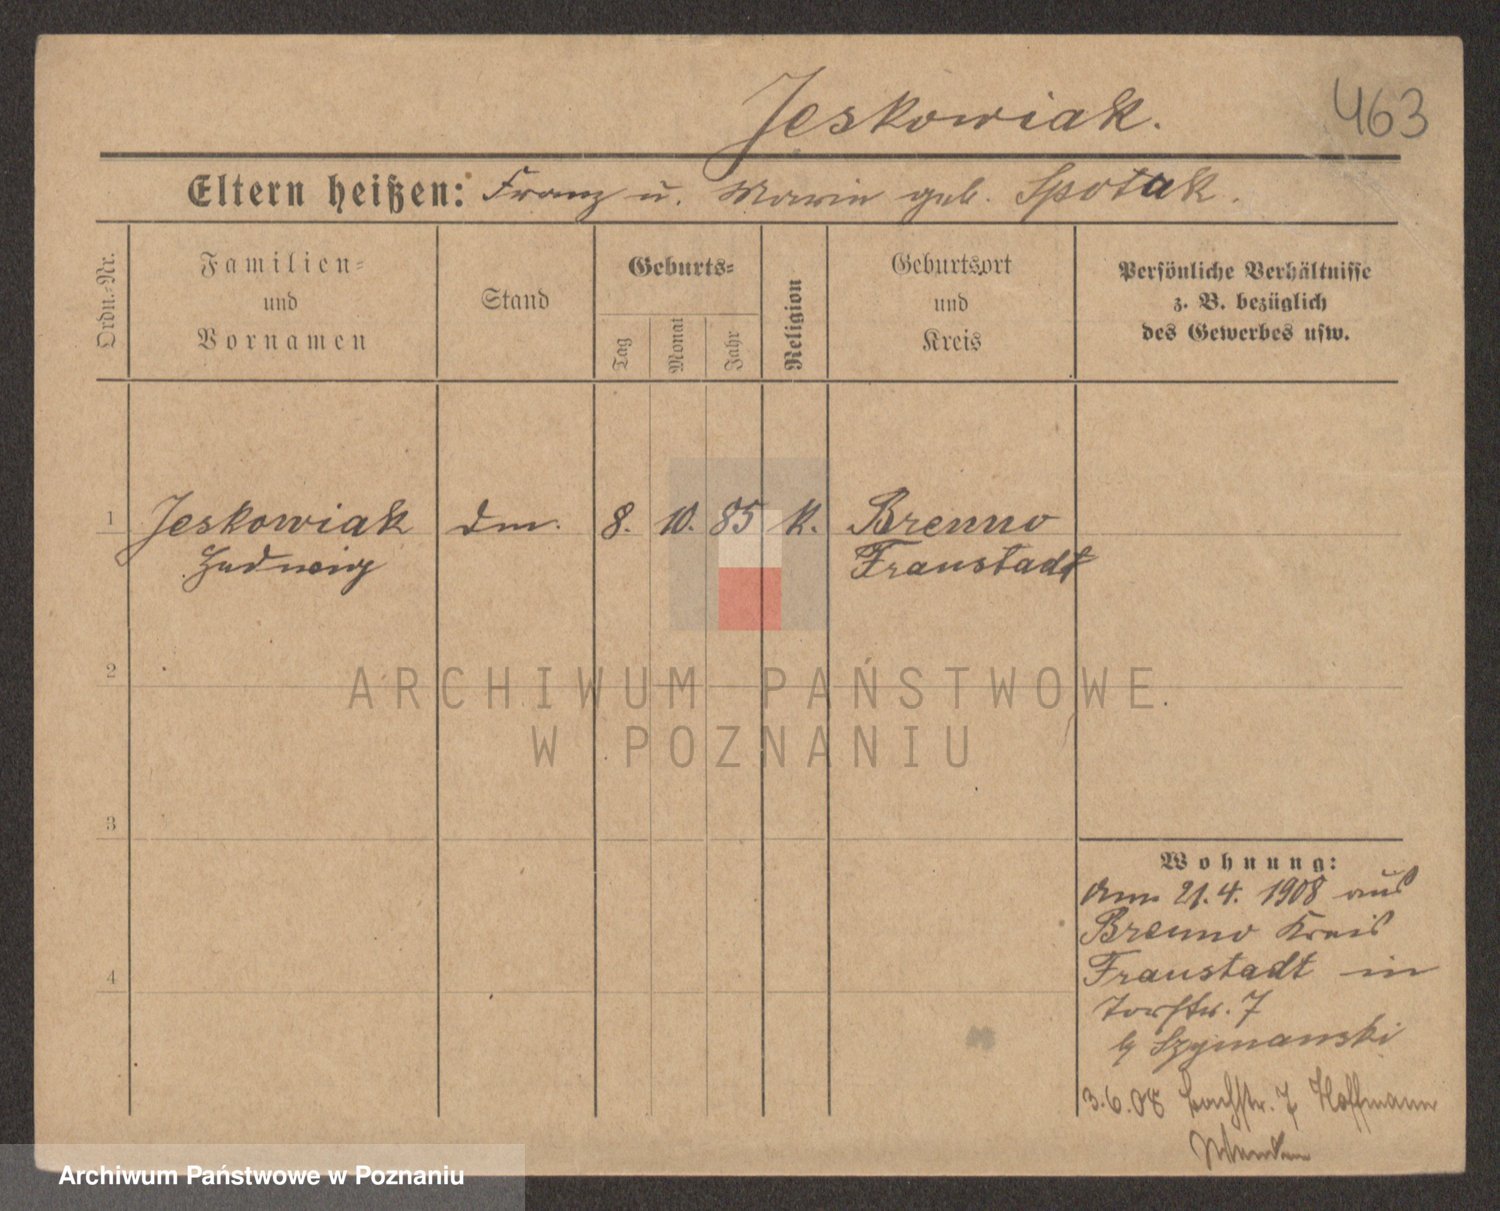 Jeskowiak.
463
Eltern heißen: Franz u. Marie geb. Spotak.
Ordn.-Nr.
Familien-
und
Vornamen
Stand
Geburts-
Tag
Monat
Jahr
Religion
Geburtsort
und
Kreis
Persönliche Verhältnisse
z. B. bezüglich
des Gewerbes usw.
1 Jeskowiak dm. 8. 10. 85 k. Brenno
Hedwig Fraustadt
2
ARCHIWUM PAŃSTWOWE
W POZNANIU
3
Wohnung:
am 21.4. 1908 aus
Brenno Kreis
Fraustadt in
Torstr. 7
b Szymanski
4
3.6.08 7 Hoffmann
Archiwum Państwowe w Poznaniu